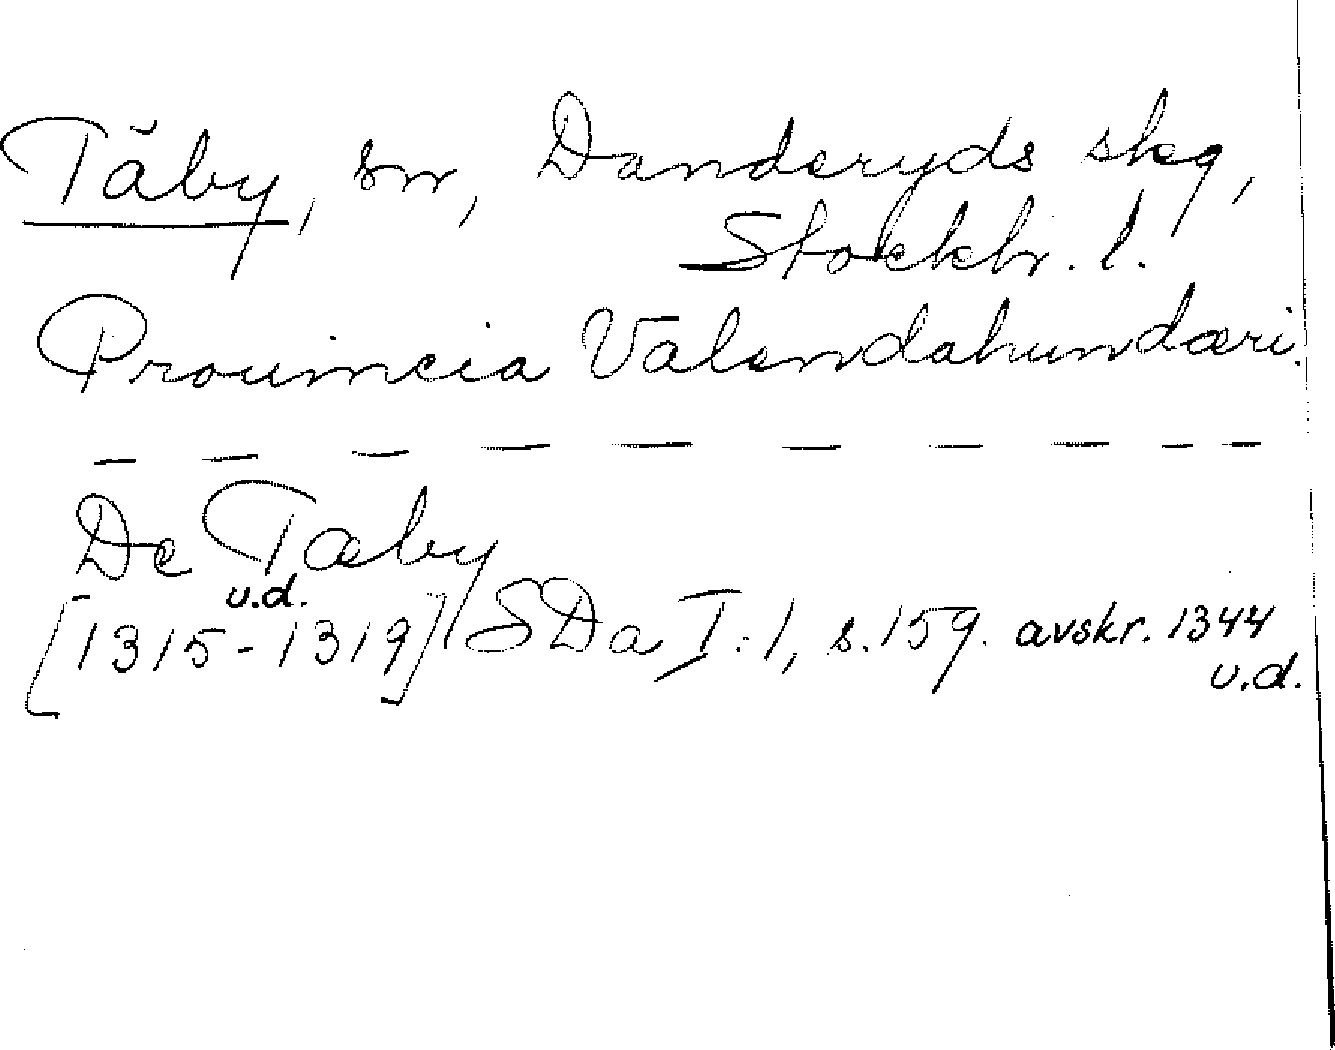 Täby, sn, Danderyds skg,
Stockh. l.
Prouincia Valendahundæri.
— — — — — — — — — —
De Tæby
u.d.
[1315-1319] SDa I:1, s. 159. avskr. 1344
u.d.